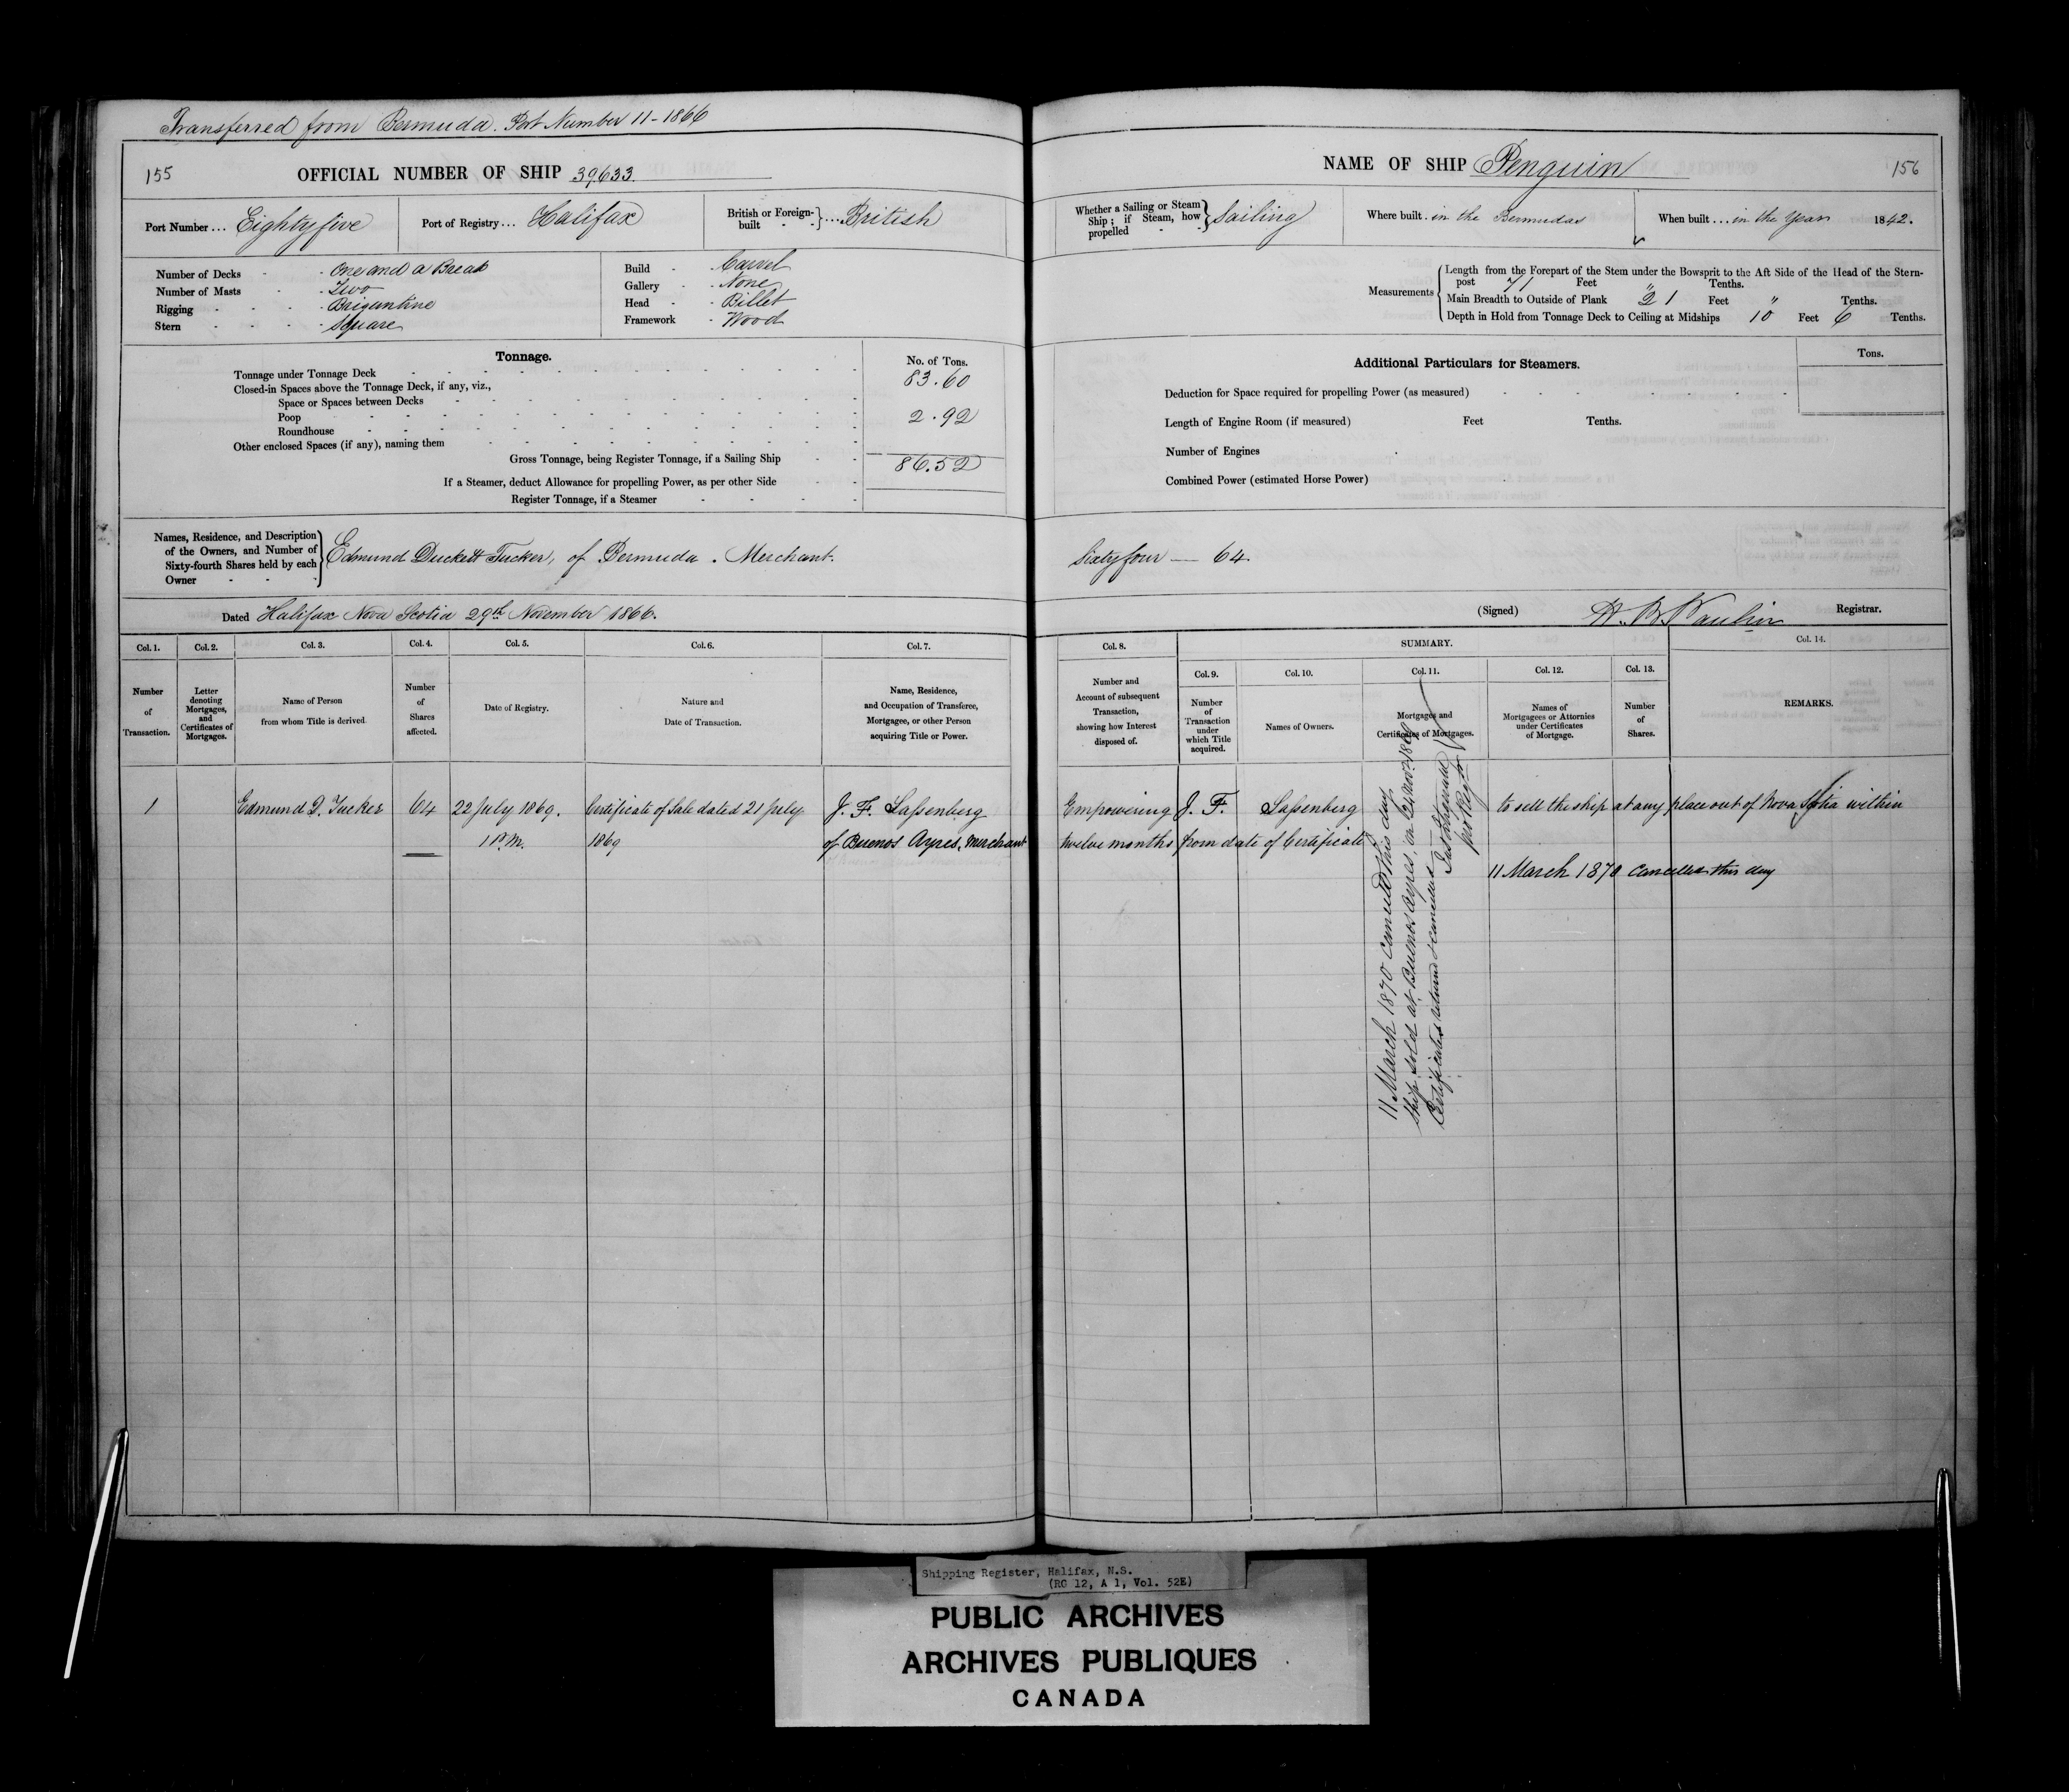 Transferred from Bermuda. Port Number 11-1866
155 OFFICIAL NUMBER OF SHIP 39633.
Port Number ... Eightyfive
Port of Registry ... Halifax
British or Foreign-built - - } .... British
Number of Decks - - One and a Break
Number of Masts - - Two
Rigging - - - - Brigantine
Stern - - - - Square
Build - - Carvel
Gallery - - None
Head - - Billet
Framework - Wood
Tonnage.
No. of Tons.
Tonnage under Tonnage Deck 83.60
Closed-in Spaces above the Tonnage Deck, if any, viz.,
Space or Spaces between Decks
Poop 2.92
Roundhouse
Other enclosed Spaces (if any), naming them
Gross Tonnage, being Register Tonnage, if a Sailing Ship 86.52
If a Steamer, deduct Allowance for propelling Power, as per other Side
Register Tonnage, if a Steamer
Names, Residence, and Description
of the Owners, and Number of
Sixty-fourth Shares held by each
Owner
Edmund Duckett Tucker, of Bermuda. Merchant.
Dated Halifax Nova Scotia 29th November 1866.
Col. 1.
Number
of
Transaction.
Col. 2.
Letter
denoting
Mortgages,
and
Certificates of
Mortgages.
Col. 3.
Name of Person
from whom Title is derived.
Col. 4.
Number
of
Shares
affected.
Col. 5.
Date of Registry.
Col. 6.
Nature and
Date of Transaction.
Col. 7.
Name, Residence,
and Occupation of Transferee,
Mortgagee, or other Person
acquiring Title or Power.
1 Edmund D. Tucker 64 22 July 1869. Certificate of Sale dated 21 July J. F. Saſsenberg
1 P.M. 1869 of Buenos Ayres, Merchant
NAME OF SHIP Penguin 156
Whether a Sailing or Steam
Ship; if Steam, how
propelled - -
Sailing
Where built. in the Bermudas
When built ... in the Year 1842.
Measurements
Length from the Forepart of the Stem under the Bowsprit to the Aft Side of the Head of the Stern-
post 71 Feet " Tenths.
Main Breadth to Outside of Plank 21 Feet " Tenths.
Depth in Hold from Tonnage Deck to Ceiling at Midships 10 Feet 6 Tenths.
Additional Particulars for Steamers.
Tons.
Deduction for Space required for propelling Power (as measured)
Length of Engine Room (if measured) Feet Tenths.
Number of Engines
Combined Power (estimated Horse Power)
Sixtyfour — 64.
(Signed) Registrar.
Col. 8.
Number and
Account of subsequent
Transaction,
showing how Interest
disposed of.
SUMMARY.
Col. 9.
Number
of
Transaction
under
which Title
acquired.
Col. 10.
Names of Owners.
Col. 11.
Mortgages and
Certificates of Mortgages.
Col. 12.
Names of
Mortgagees or Attornies
under Certificates
of Mortgage.
Col. 13.
Number
of
Shares.
Col. 14.
REMARKS.
Empowering J. F. Saſsenberg to sell the ship at any place out of Nova Scotia within
twelve months from date of Certificate
11 March 1870 cancelled this day
11 March 1870 Cancelled this day
Ship sold at Buenos Ayres, on 24 Novr. 1869
Certificates returned & cancelled
Shipping Register, Halifax, N.S.
(RG 12, A 1, Vol. 52E)
PUBLIC ARCHIVES
ARCHIVES PUBLIQUES
CANADA